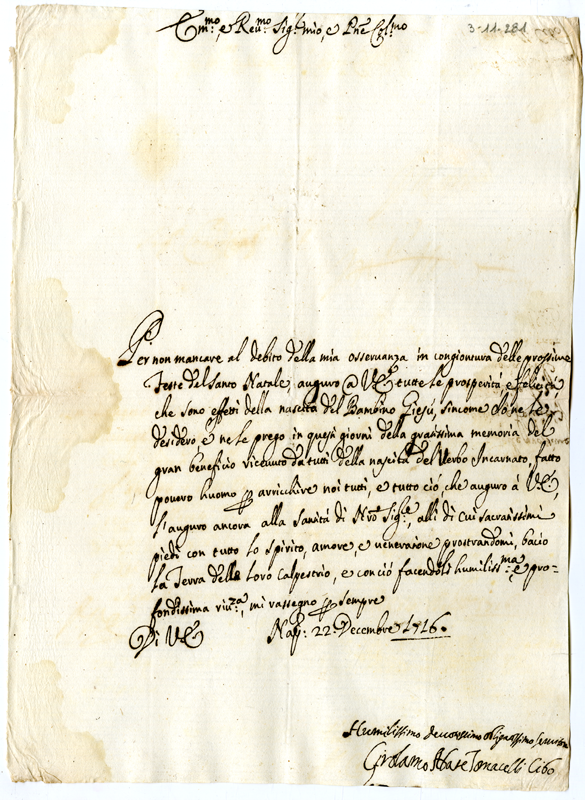 Em.mo, e Reu.mo Sig.r mio, e Pne Col.mo
3-11-281
Per non mancare al debito della mia osseruanza in congiontura delle prossime
feste del Santo Natale, auguro @ VE tutte le prosperità e felicità
che sono effetti della nascita del Bambino Giesù, sincome
desidero, e ne le prego in questi giorni della gratissima memoria del
gran beneficio riceuuto da tutti della nascita del Verbo Incarnato, fatto
pouero huomo p arricchire noi tutti, e tutto ciò che auguro à VE,
l'auguro ancora alla Santità di Nro Sig.re, alli di Cui sacratissimi
piedi con tutto lo spirito, amore, e ueneratione prostrandomi, bacio
la Terra delli loro calpestrio, e con ciò facendoli humiliss.ma, e pro-
fondissima riu.za, mi rassegno p sempre
Di VE Nap: 22. Decembre 1716.
Humilissimo deuotissimo obligatissimo seruitore
Girolamo Abate Tomacelli Cibo